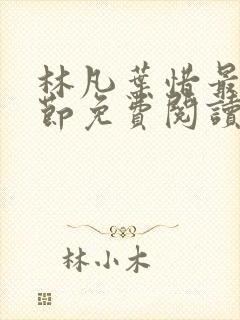 林凡葉惜最
節免費閱讀
林小木